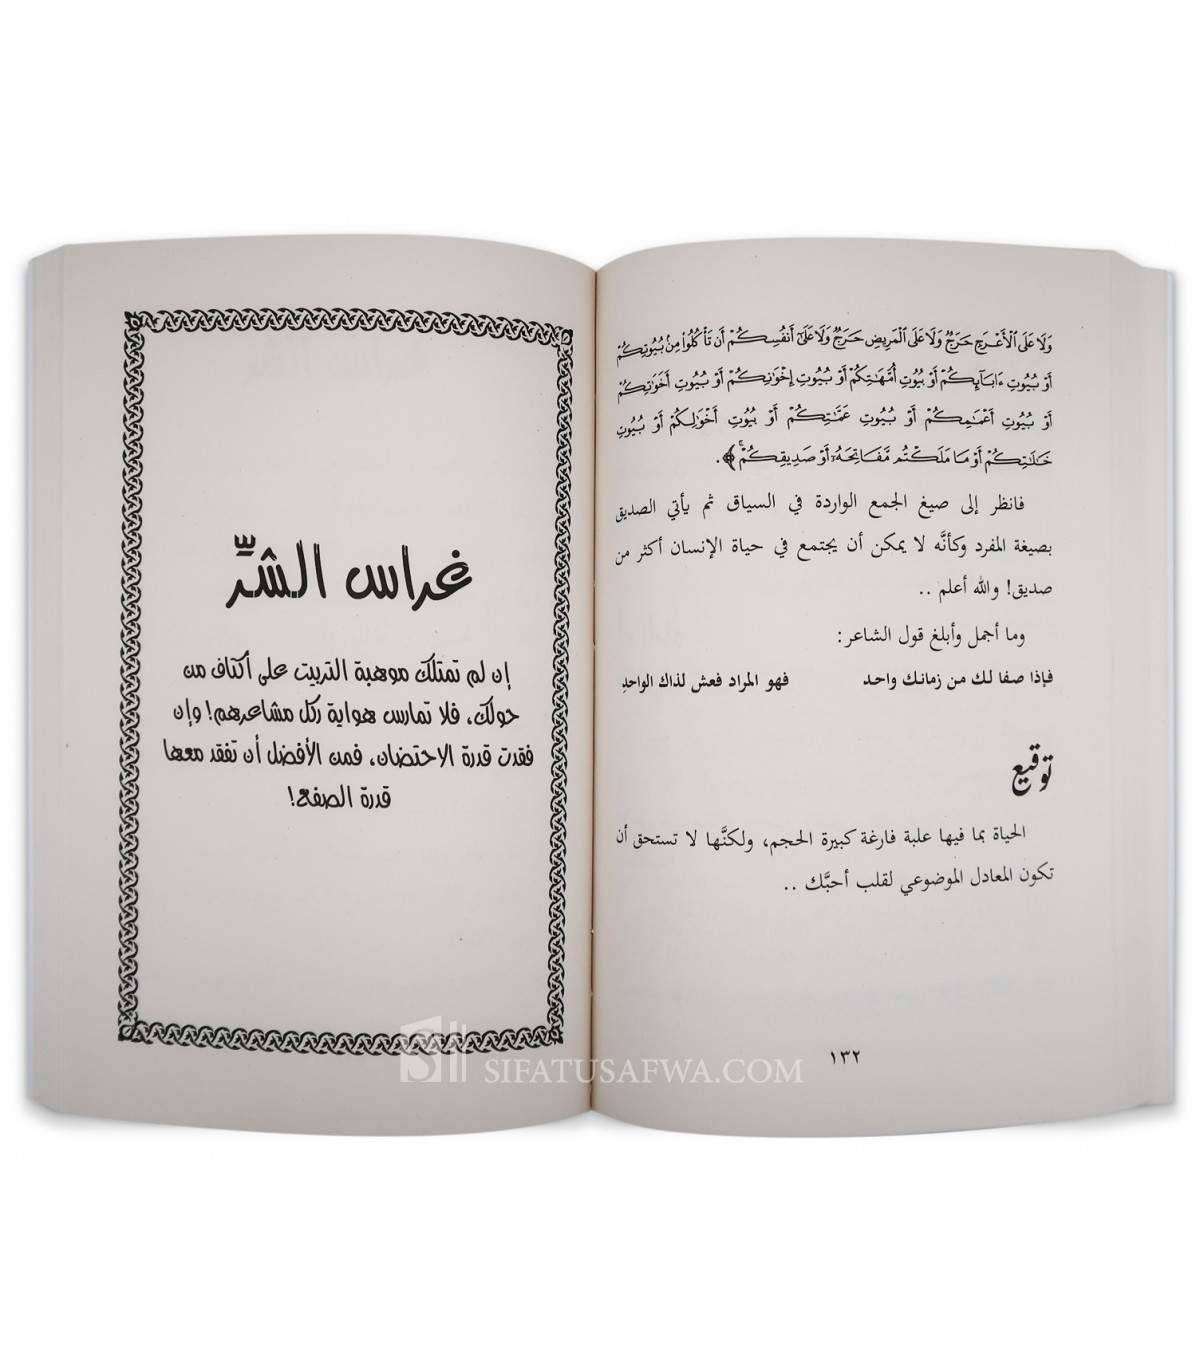 وَلَا عَلَى ٱلْأَعْرَجِ حَرَجٌ وَلَا عَلَى ٱلْمَرِيضِ حَرَجٌ وَلَا عَلَىٰٓ أَنفُسِكُمْ أَن تَأْكُلُوا۟ مِنۢ بُيُوتِكُمْ
أَوْ بُيُوتِ ءَابَآئِكُمْ أَوْ بُيُوتِ أُمَّهَٰتِكُمْ أَوْ بُيُوتِ إِخْوَٰنِكُمْ أَوْ بُيُوتِ أَخَوَٰتِكُمْ
أَوْ بُيُوتِ أَعْمَٰمِكُمْ أَوْ بُيُوتِ عَمَّٰتِكُمْ أَوْ بُيُوتِ أَخْوَٰلِكُمْ أَوْ بُيُوتِ
خَٰلَٰتِكُمْ أَوْ مَا مَلَكْتُم مَّفَاتِحَهُۥٓ أَوْ صَدِيقِكُمْ ۚ﴾.
فانظر إلى صيغ الجمع الواردة في السياق ثم يأتي الصديق
بصيغة المفرد وكأنَّه لا يمكن أن يجتمع في حياة الإنسان أكثر من
صديق! والله أعلم ..
وما أجمل وأبلغ قول الشاعر:
فإذا صفا لك من زمانك واحد فهو المراد فعش لذاك الواحدِ
توقيع
الحياة بما فيها علبة فارغة كبيرة الحجم، ولكنَّها لا تستحق أن
تكون المعادل الموضوعي لقلب أحبَّك ..
١٣٢
غراس الشرِّ
إن لم تمتلك موهبة التربيت على أكتاف من
حولك، فلا تمارس هواية ركل مشاعرهم! وإن
فقدت قدرة الاحتضان، فمن الأفضل أن تفقد معها
قدرة الصفع!
SIFATUSAFWA.COM